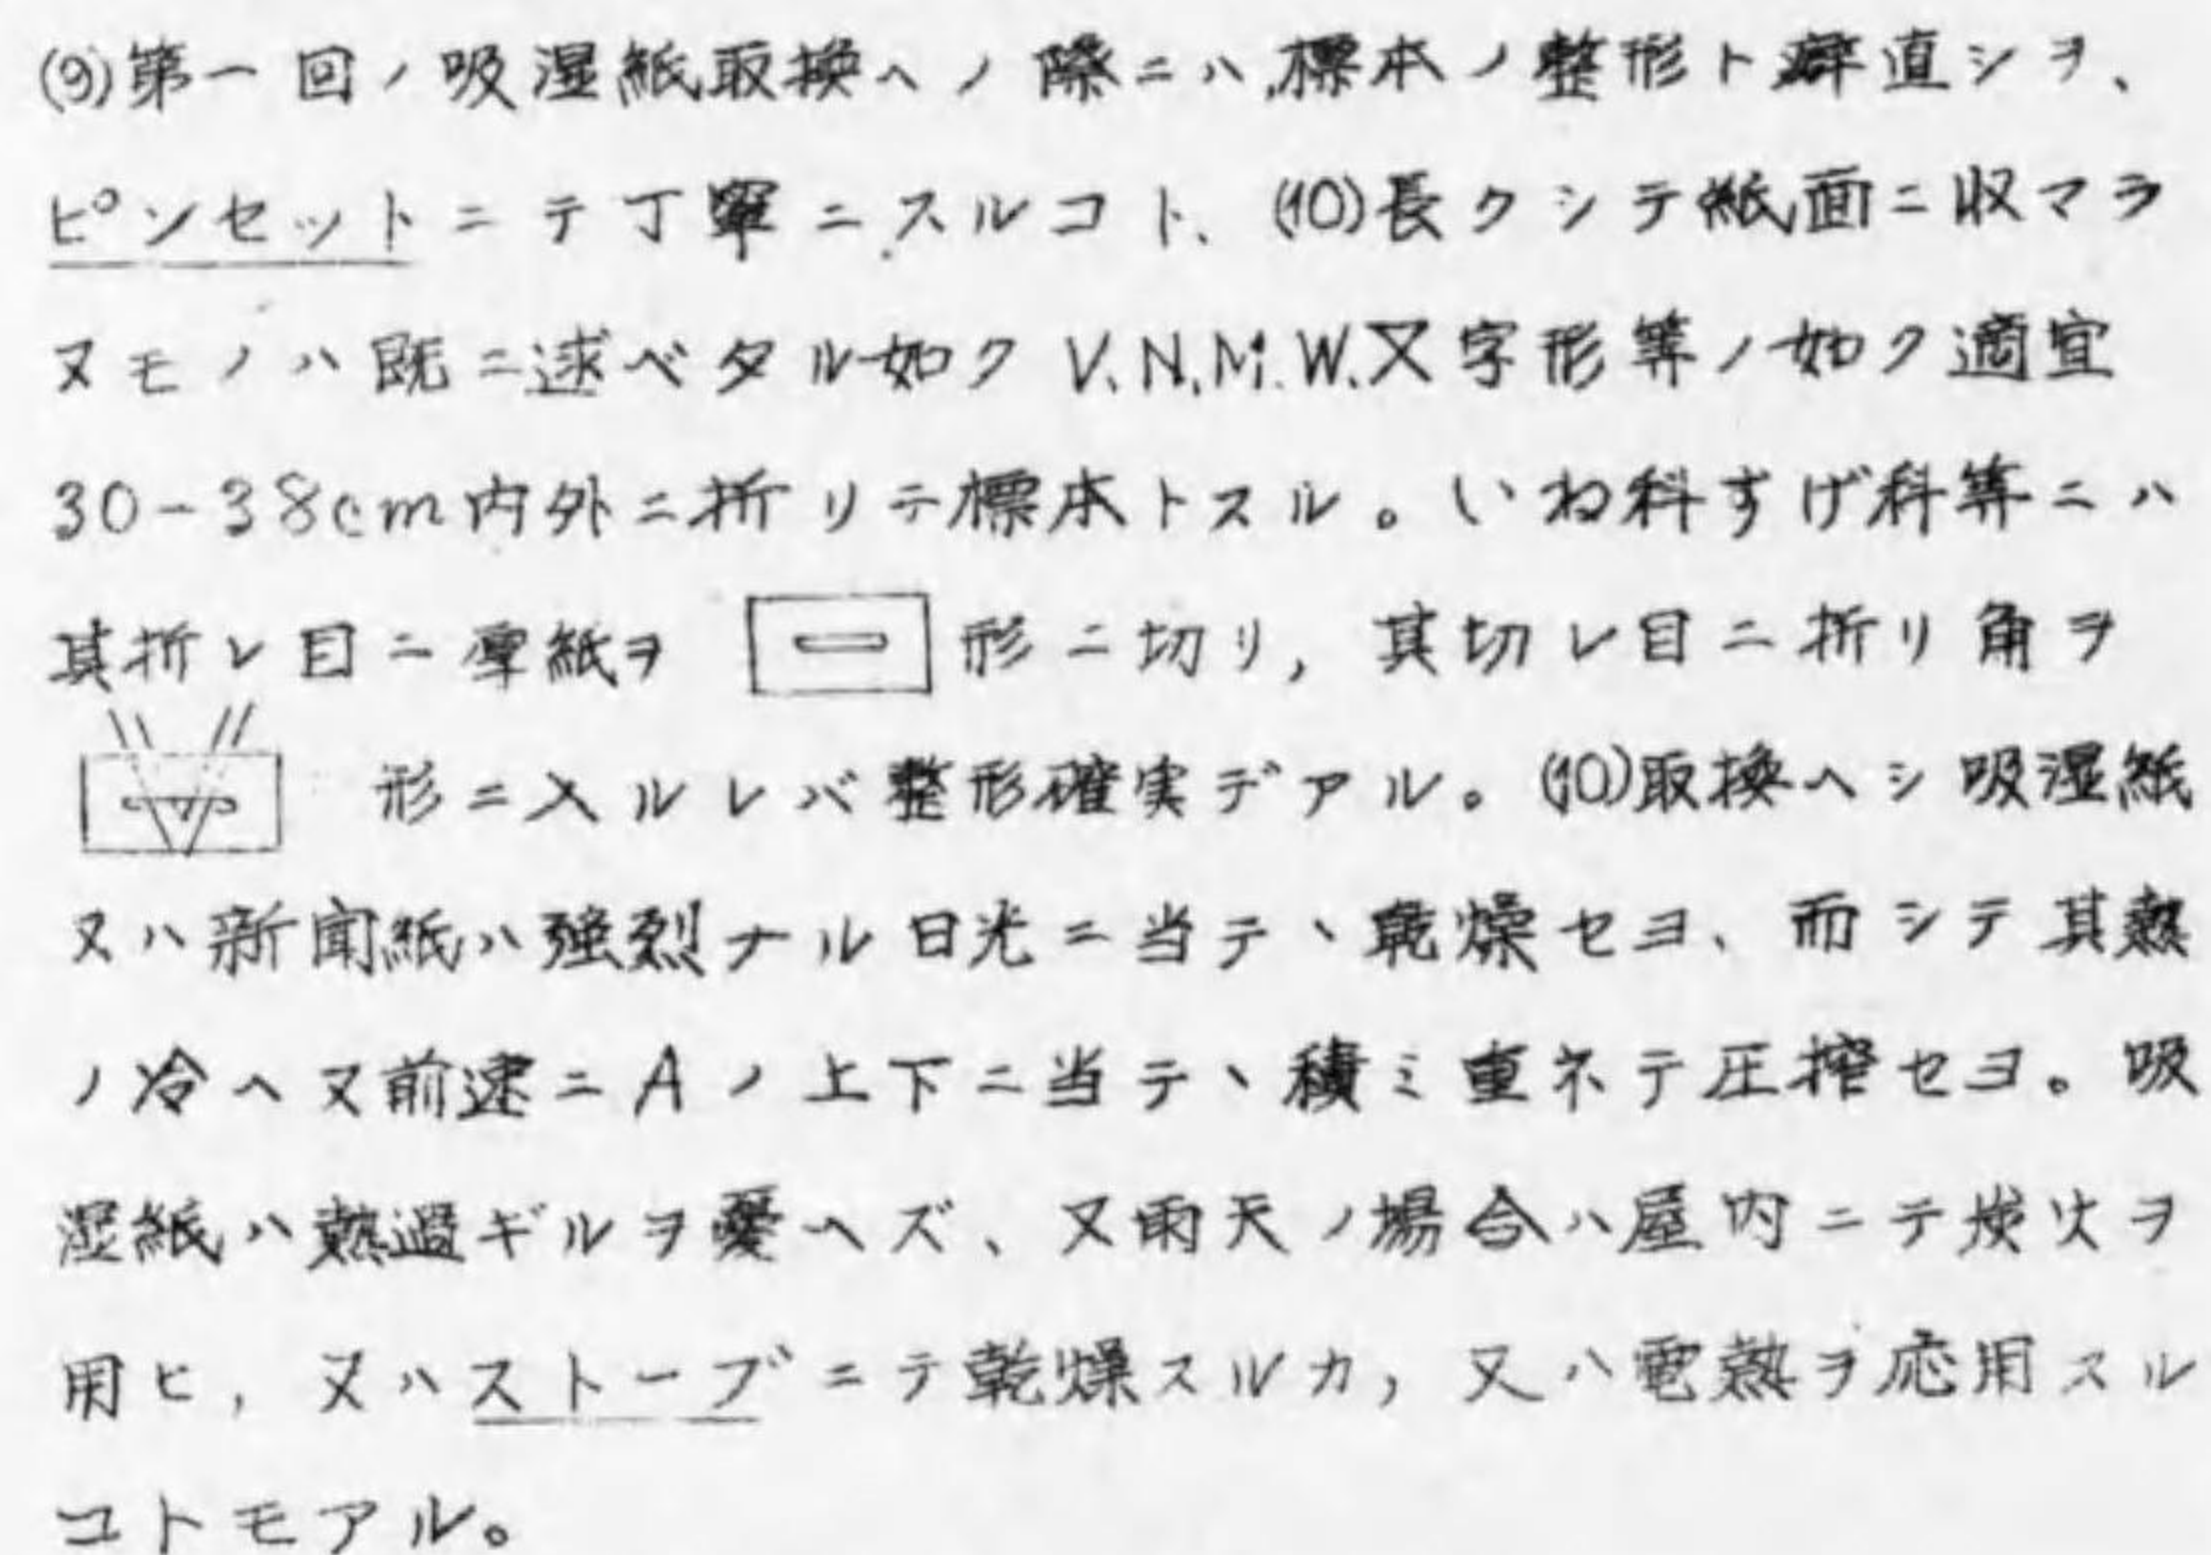 (9)第一回ノ吸湿紙取換ヘノ際ニハ,標本ノ整形ト癖直シヲ、
ピンセットニテ丁寧ニスルコト、(10)長クシテ紙面ニ収マラ
ヌモノハ既ニ述ベタル如クV.N.M.W.又字形等ノ如ク適宜
30-38cm内外ニ折リテ標本トスル。いね科すげ科等ニハ
其折レ目ニ厚紙ヲ 形ニ切リ, 其切レ目ニ折リ角ヲ
形ニ入ルレバ整形確実デアル。(10)取換ヘシ吸湿紙
又ハ新聞紙ハ強烈ナル日光ニ当テ、乾燥セヨ、而シテ其熱
ノ冷ヘヌ前速ニAノ上下ニ当テ、積ミ重ネテ圧搾セヨ。吸
湿紙ハ熱過ギルヲ憂ヘズ、又雨天ノ場合ハ屋内ニテ炭火ヲ
用ヒ, 又ハストーブニテ乾燥スルカ, 又ハ電熱ヲ応用スル
コトモアル。